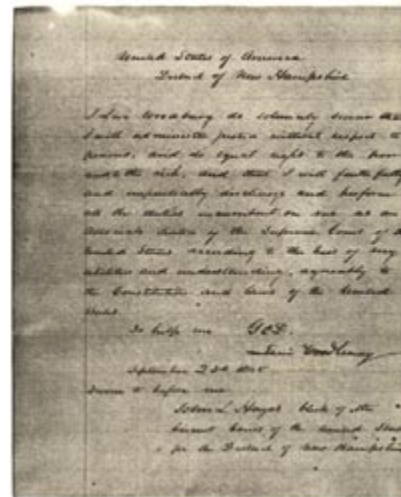 United States of America
District of New Hampshire
I Levi Woodbury do solemnly swear that
I will administer justice without respect to
persons, and do equal right to the poor
and to the rich, and that I will faithfully
and impartially discharge and perform
all the duties incumbent on me as an
Associate Justice of the Supreme Court of the
United States according to the best of my
abilities and understanding, agreeably to
the Constitution and laws of the United
States.
So help me GOD.
Levi Woodbury
September 23d 1845
Sworn to before me
John L Hayes clerk of the
Circuit Court of the United States
for the District of New Hampshire